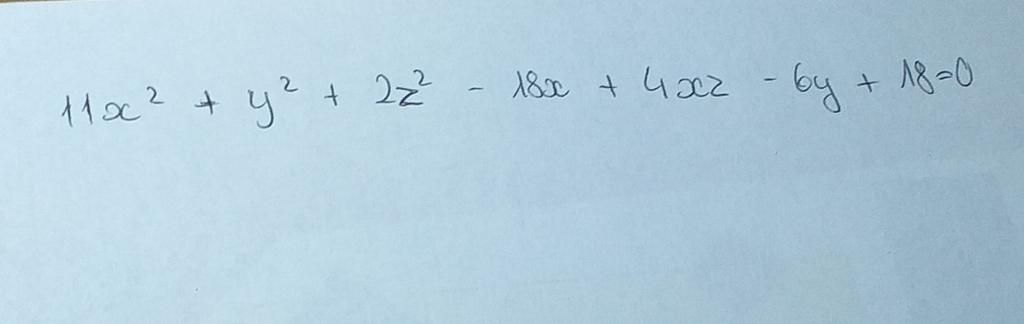 11x² + y² + 2z² - 18x + 4xz - 6y + 18=0